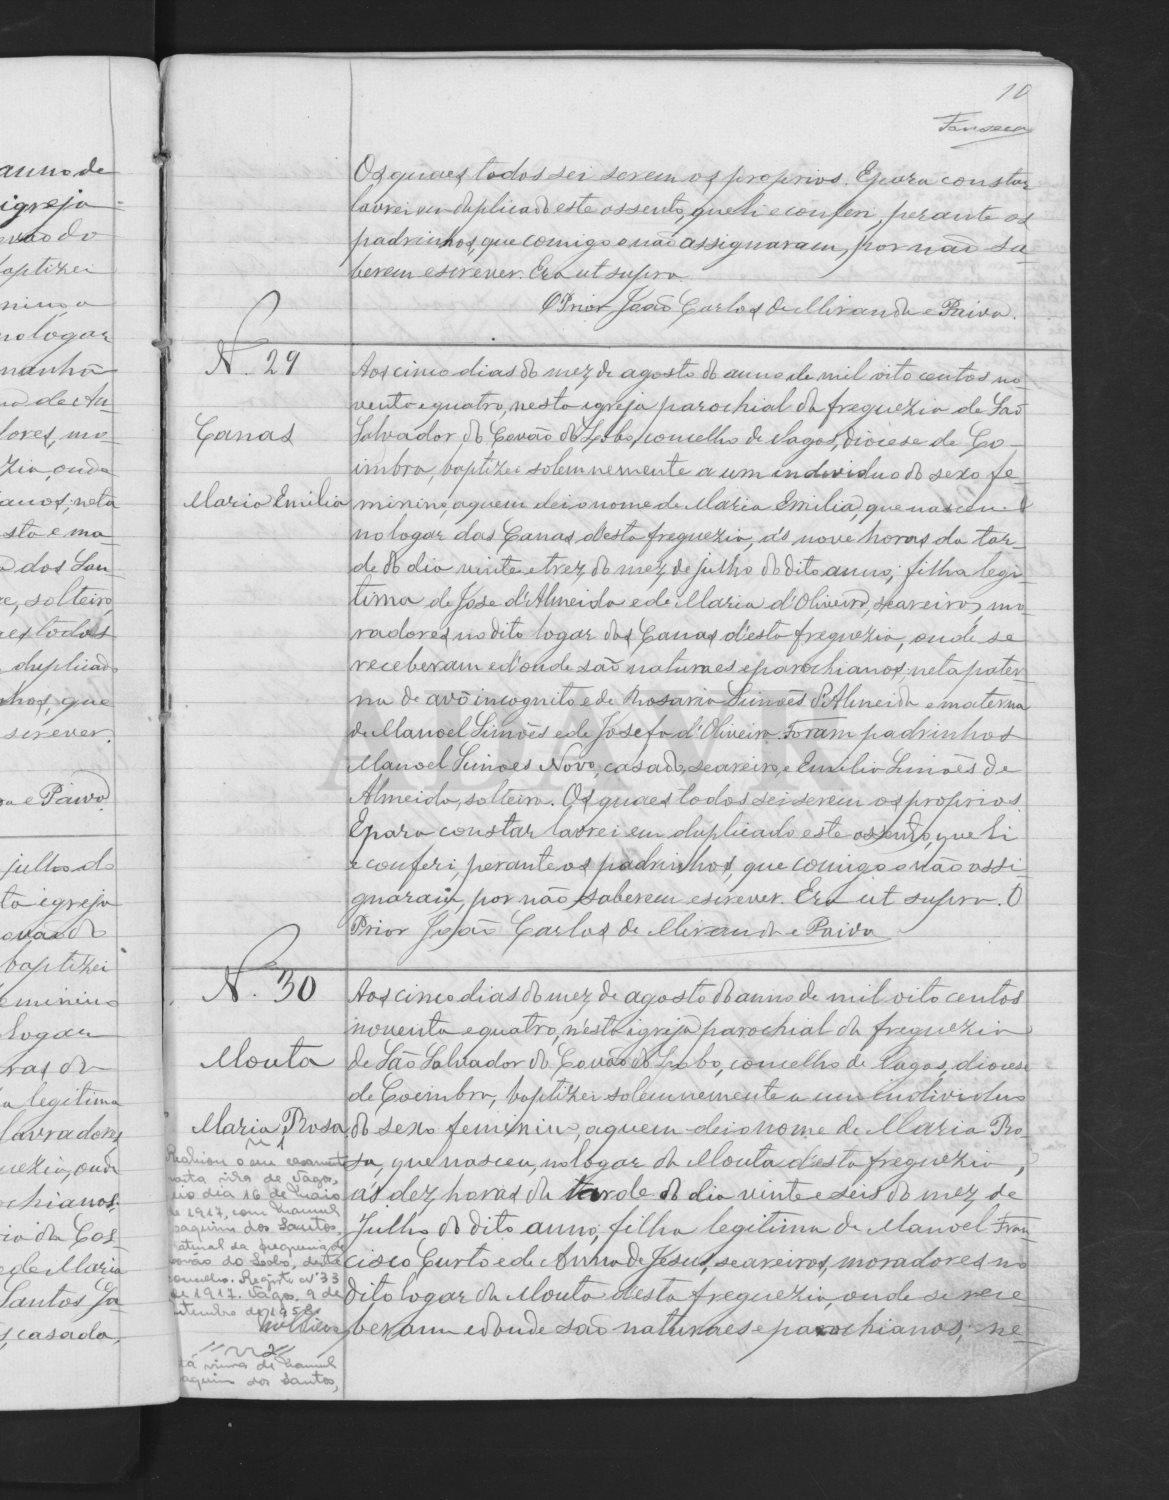 10
Fonseca
Os quaes todos sei serem os proprios. E para constar
lavrei em duplicado este assento, que li e conferi, perante os
padrinhos, que comigo o não assignaram, por não sa-
berem escrever. Era ut supra
O Prior João Carlos de Miranda e Paiva.
N. 29
Canas
Maria Emilia
Aos cinco dias do mez de agosto do anno de mil oito centos no-
venta e quatro, nesta igreja parochial da freguezia de São
Salvador do Covão do Lobo, concelho de Vagos, diocese de Co-
imbra, baptizei solemnemente a um individuo do sexo fe-
minino, a quem dei o nome de Maria Emilia, que nasceu
no logar das Canas d'esta freguezia, ás nove horas da tar-
de do dia vinte e trez do mez de julho do dito anno; filha legi-
tima de José d'Almeida e de Maria d'Oliveira, seareiros, mo-
radores no dito logar das Canas d'esta freguezia, onde se
receberam e d'onde são naturaes e parochianos; neta pater-
na de avô incognito e de Rosaria Simões d'Almeida e materna
de Manoel Simões e de Josefa d'Oliveira. Foram padrinhos
Manoel Simões Novo, casado, seareiro, e Emilia Simões de
Almeida, solteira. Os quaes todos sei serem os proprios.
E para constar lavrei em duplicado este assento, que li
e conferi, perante os padrinhos, que comigo o não assi-
gnaram, por não saberem escrever. Era ut supra. O
Prior João Carlos de Miranda e Paiva
N. 30
Mouta
Maria Rosa
Aos cinco dias do mez de agosto do anno de mil oito centos
noventa e quatro, n'esta igreja parochial da freguezia
de São Salvador do Covão do Lobo, concelho de Vagos, diocese
de Coimbra, baptizei solemnemente a um individuo
do sexo feminino, a quem dei o nome de Maria Ro-
sa, que nasceu, no logar da Mouta d'esta freguezia,
ás dez horas da tarde do dia vinte e seis do mez de
Julho do dito anno, filha legitima de Manoel Fran-
cisco Curto e de Anna de Jesus, seareiros, moradores no
dito logar da Mouta d'esta freguezia, onde se rece-
beram e d'onde são naturaes e parochianos; ne-
nº 1
Realizou o seu casamento
nesta vila de Vagos,
no dia 16 de maio
de 1917, com Manuel
Joaquim dos Santos,
natural da freguesia de
Covão do Lobo, deste
concelho. Registo nº 33
de 1917. Vagos, 9 de
setembro de 1958.
nº 2
Manuel
Joaquim dos Santos,
anno de
igreja
baptizei
no logar
de An-
lores, mo-
zia, onde
anos; neta
sta e ma-
dos San-
solteiro,
es todos
duplicado
nhos, que
screver.
a e Paiva.
julho do
ta igreja
Covão do
baptizei
eminino
logar
ras da
a legitima
lavradores
uezia, onde
chianos;
ia da Cos-
e de Maria
Santos
casada,